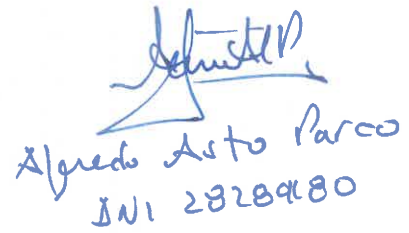 Alfredo Asto Parco
DNI 28289180